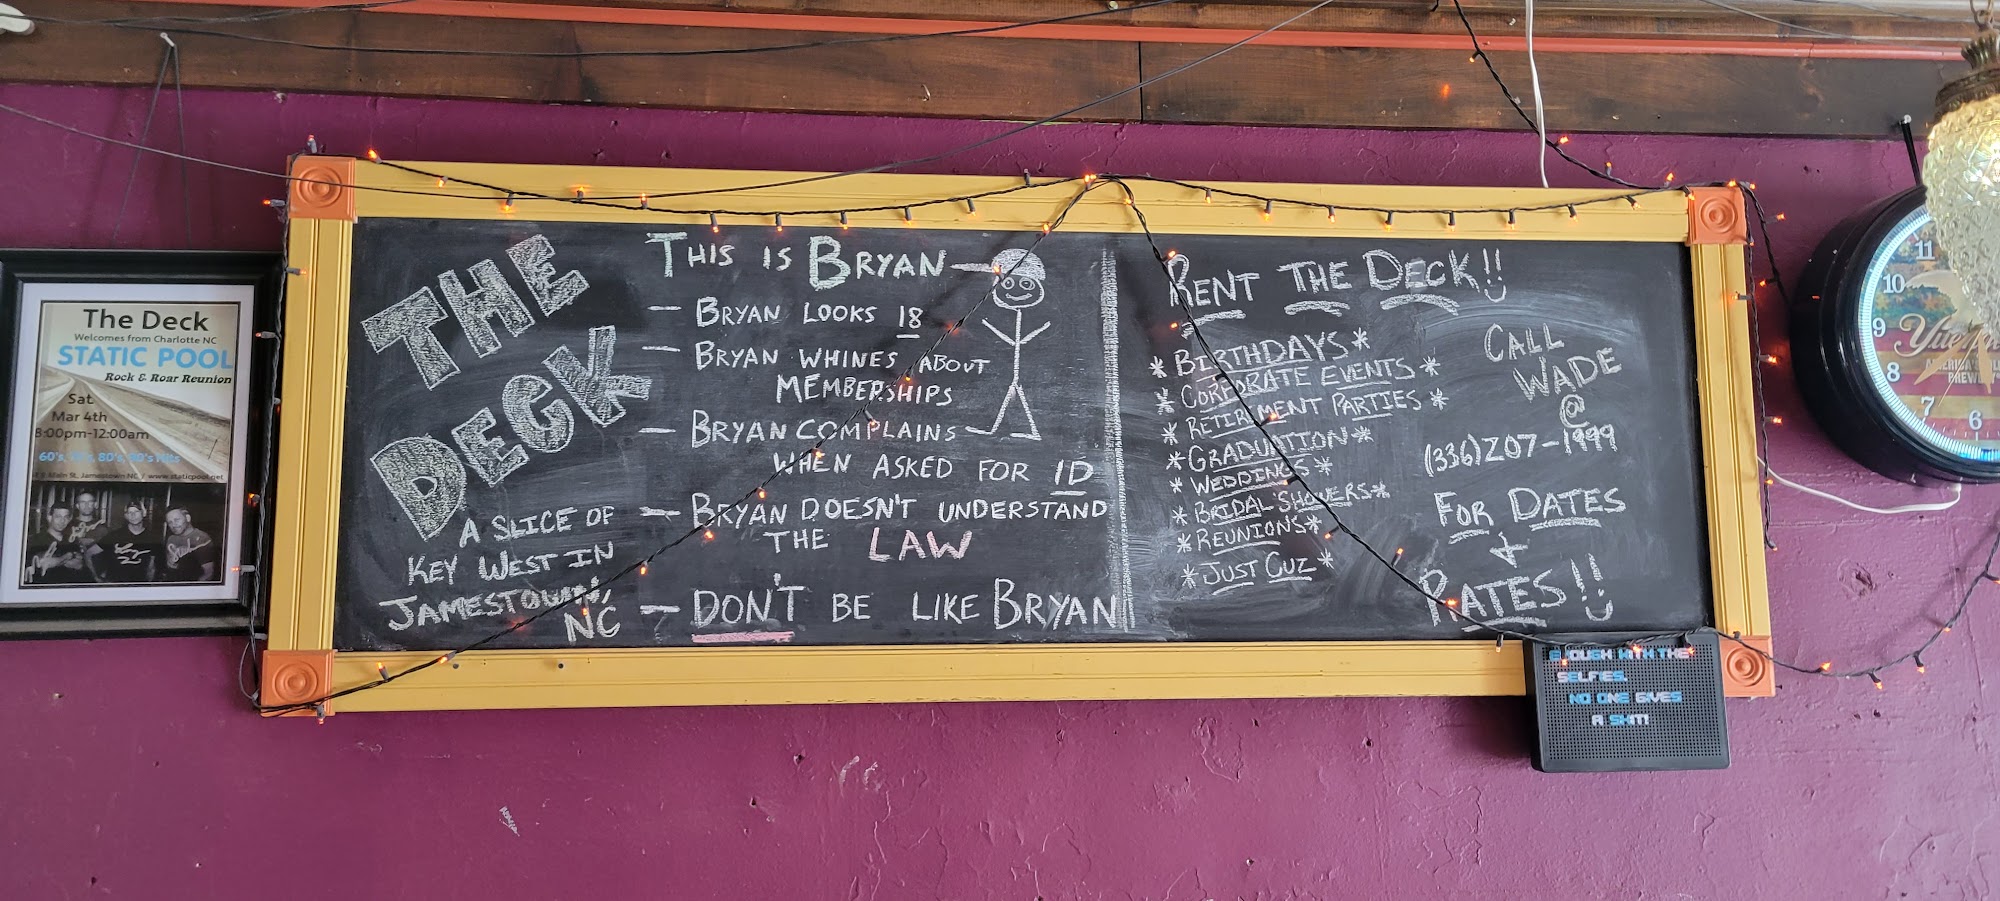 The Deck
Welcomes from Charlotte NC
STATIC POOL
Rock & Roar Reunion
Sat
Mar 4th
8:00pm-12:00am
60's, 70's, 80's, 90's Hits
Main St, Jamestown NC / www.staticpool.net
THE
DECK
A SLICE OF
KEY WEST IN
JAMESTOWN,
NC
THIS IS BRYAN
- BRYAN LOOKS 18
- BRYAN WHINES ABOUT
MEMBERSHIPS
- BRYAN COMPLAINS
WHEN ASKED FOR ID
- BRYAN DOESN'T UNDERSTAND
THE LAW
- DON'T BE LIKE BRYAN
RENT THE DECK!!
* BIRTHDAYS *
* CORPORATE EVENTS *
* RETIREMENT PARTIES *
* GRADUATION *
* WEDDINGS *
* BRIDAL SHOWERS *
* REUNIONS *
* JUST CUZ *
CALL
WADE
@
(336)207-1999
FOR DATES
+
RATES!!
ENOUGH WITH THE
SELFIES.
NO ONE GIVES
A SHIT!
11
10
9
8
7
6